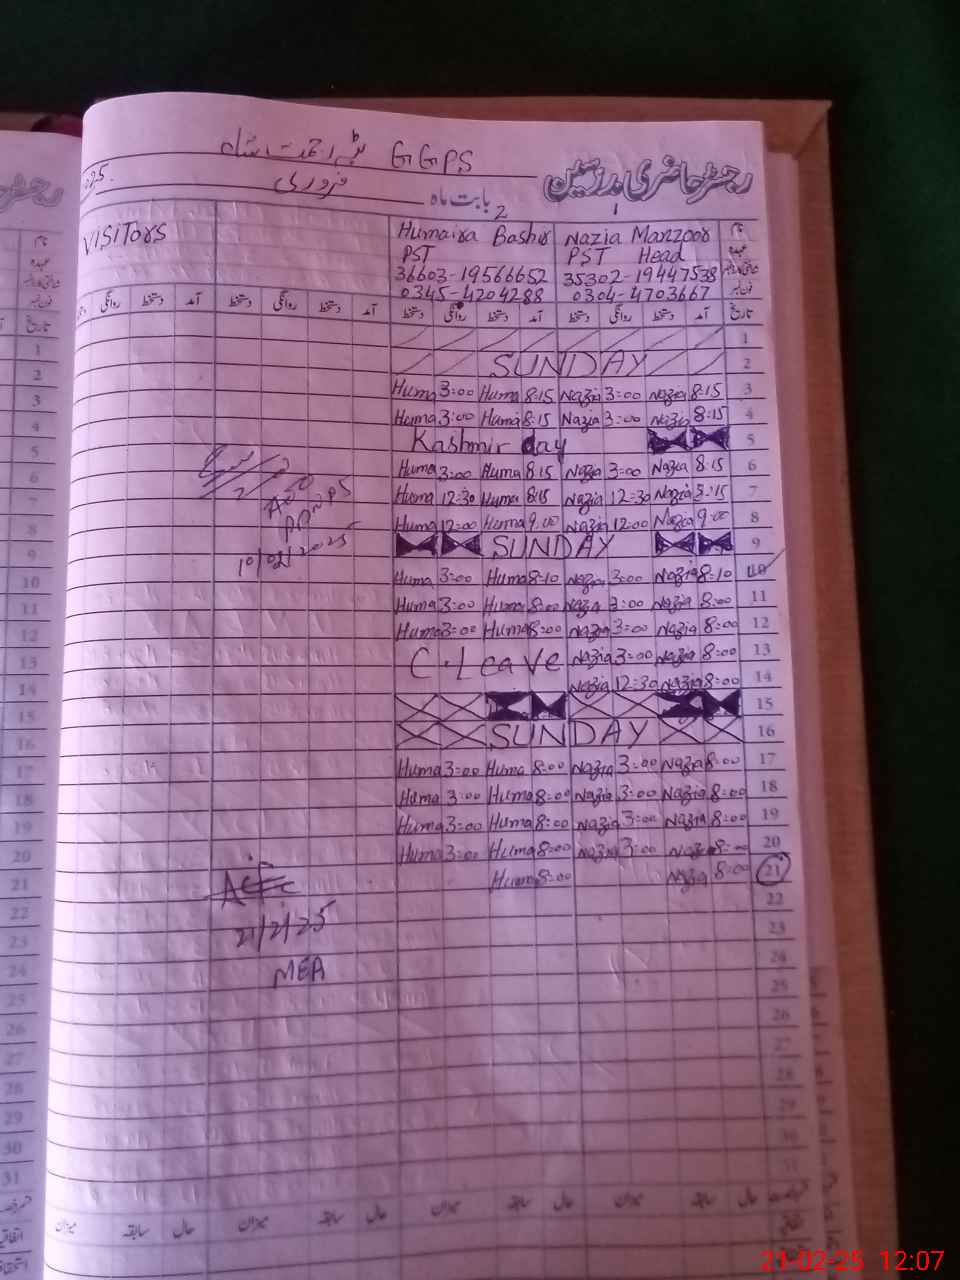 GGPS
رجسٹر حاضری مدرسین
بابت ماہ فروری
VISITORS
2 1
Humaira Bashir Nazia Manzoor نام
PST PST Head عہدہ
36603-19566652 35302-19447538
0345-4204288 0304-4703667 فون نمبر
روانگی دستخط آمد دستخط روانگی دستخط آمد دستخط روانگی دستخط آمد دستخط روانگی دستخط آمد تاریخ
1
SUNDAY 2
Huma 3:00 Huma 8:15 Nazia 3:00 Nazia 8:15 3
Huma 3:00 Huma 8:15 Nazia 3:00 Nazia 8:15 4
Kashmir day 5
Huma 3:00 Huma 8:15 Nazia 3:00 Nazia 8:15 6
Huma 12:30 Huma 8:15 Nazia 12:30 Nazia 8:15 7
Huma 12:00 Huma 9:00 Nazia 12:00 Nazia 9:00 8
SUNDAY 9
10/02/2025
Huma 3:00 Huma 8:10 Nazia 3:00 Nazia 8:10 10
Huma 3:00 Huma 8:00 Nazia 3:00 Nazia 8:00 11
Huma 3:00 Huma 8:00 Nazia 3:00 Nazia 8:00 12
C.Leave Nazia 3:00 Nazia 8:00 13
Nazia 12:30 Nazia 8:00 14
15
SUNDAY 16
Huma 3:00 Huma 8:00 Nazia 3:00 Nazia 8:00 17
Huma 3:00 Huma 8:00 Nazia 3:00 Nazia 8:00 18
Huma 3:00 Huma 8:00 Nazia 3:00 Nazia 8:00 19
Huma 3:00 Huma 8:00 Nazia 3:00 Nazia 8:00 20
Huma 8:00 Nazia 8:00 21
22
21/2/25
23
MEA
24
25
26
27
28
29
30
31
میزان سابقہ حال میزان سابقہ حال میزان سابقہ حال میزان سابقہ حال
21-02-25 12:07